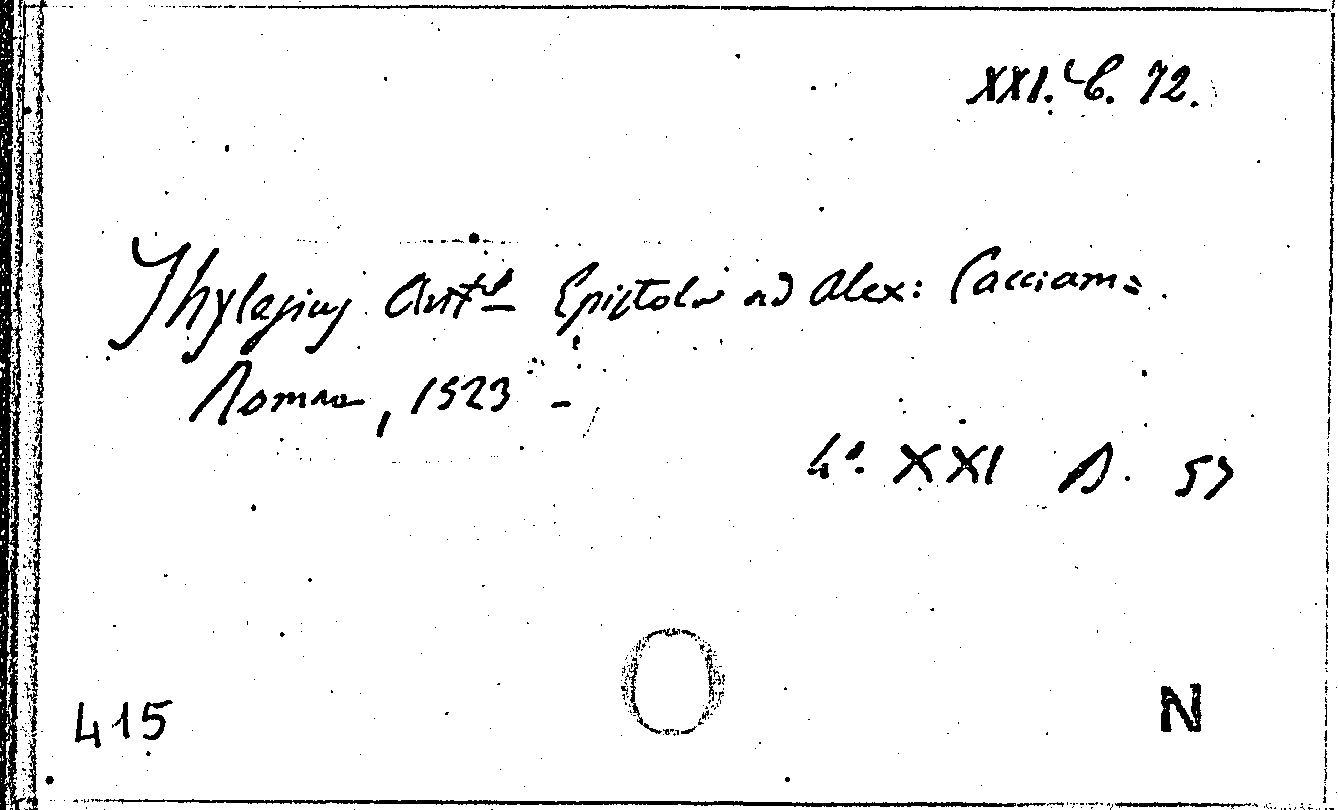 XXI. C. 72.
Thylesius Ant.us Epistola ad Alex: Cacciam=
Romae, 1523 -
4°. XXI B. 57
415
N